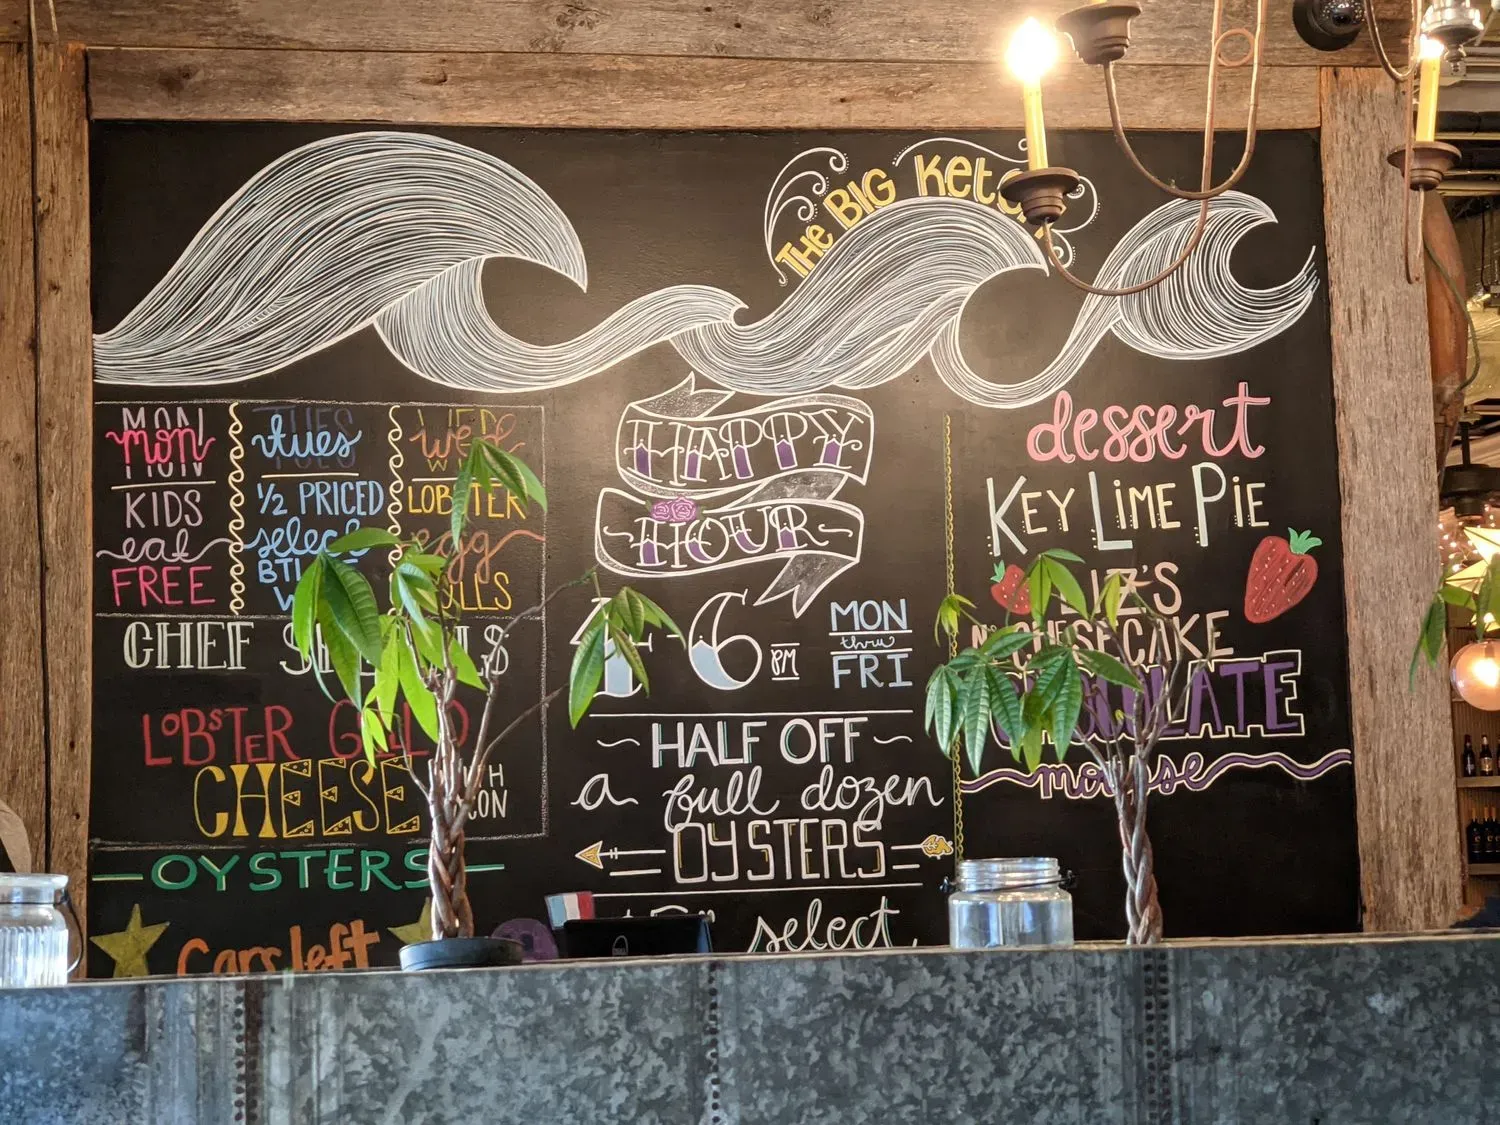 THE BIG
MON
mon
KIDS
eat
FREE
TUES
tues
1/2 PRICED
select
WED
wed
LOBSTER
egg
CHEF
LOBSTER
CHEESE
OYSTERS
Cars left
HAPPY
HOUR
4-6 PM
MON
thru
FRI
HALF OFF
a full dozen
OYSTERS
select
dessert
KEY LIME PIE
LIZ'S
CHEESECAKE
CHOCOLATE
mousse